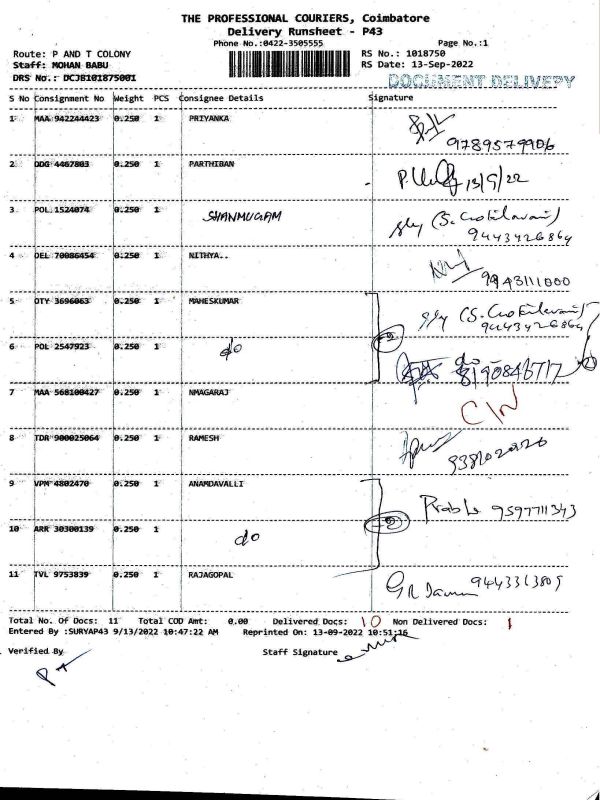 THE PROFESSIONAL COURIERS, Coimbatore
Delivery Runsheet - P43
Phone No.:0422-3505555 Page No.:1
Route: P AND T COLONY RS No.: 1018750
Staff: MOHAN BABU RS Date: 13-Sep-2022
DRS No.: DCJB101875001 DOCUMENT DELIVERY
S No Consignment No Weight PCS Consignee Details Signature
1 MAA 942244423 0.250 1 PRIYANKA
9789579906
2 DDG 4467803 0.250 1 PARTHIBAN
13/9/22
3 POL 1524074 0.250 1 SHANMUGAM
9443426864
4 DEL 70086454 0.250 1 NITHYA..
9943111000
5 OTY 3696063 0.250 1 MAHESKUMAR
9443426864
6 POL 2547923 0.250 1 do
do
8190846717
7 MAA 568100427 0.250 1 NMAGARAJ
C/N
8 TDR 900025064 0.250 1 RAMESH
9 VPM 4802470 0.250 1 ANAMDAVALLI
9597711343
10 ARR 30300139 0.250 1 do
11 TVL 9753839 0.250 1 RAJAGOPAL
9443313809
Total No. Of Docs: 11 Total COD Amt: 0.00 Delivered Docs: 10 Non Delivered Docs: 1
Entered By :SURYAP43 9/13/2022 10:47:22 AM Reprinted On: 13-09-2022 10:51:16
Verified By Staff Signature